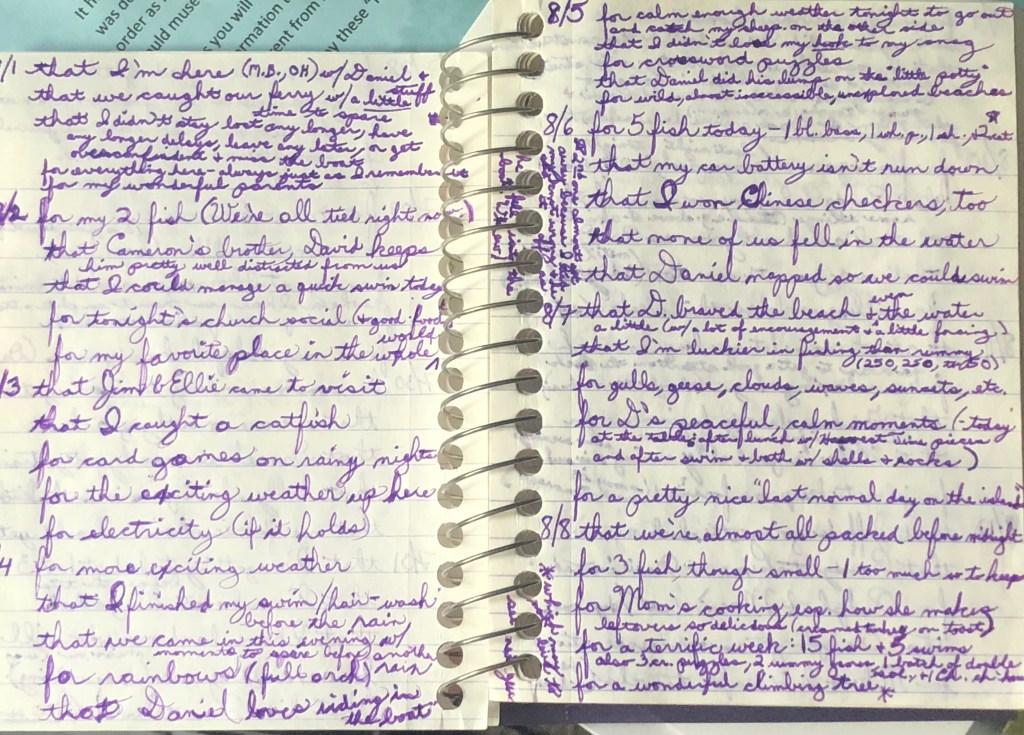 It h
was de
order as
ould muse
s you will
ormation t
ent from
y these "
/1 that I'm here (M.B., OH) w/ Daniel +
that we caught our ferry w/ a little stuff
time to spare
that I didn't stay lost any longer, have
any longer delays, leave any later, or get
& miss the boat
for everything here - always just as I remember it
for my wonderful parents
8/2 for my 2 fish (We're all tied right now)
that Cameron's brother, David keeps
him pretty well distracted from us
that I could manage a quick swim today
for tonight's church social (+ good food)
for my favorite place in the whole world
/3 that Jim & Ellie came to visit
that I caught a catfish
for card games on rainy nights
for the exciting weather up here
for electricity (if it holds)
4 for more exciting weather
that I finished my swim/hair-wash
before the rain
that we came in this evening w/
moments to spare before another
rain
for rainbows (full arch)
that Daniel loves riding in
the boat
8/5 for calm enough weather tonight to go out
and catch my sheep. on the other side
that I didn't lose my hook to my snag
for crossword puzzles
that Daniel did his dump on the "little potty"
for wild, almost inaccessible, unexplored beaches
8/6 for 5 fish today - 1 bl. bass, 1 wh. p., 1 sh. + 2 cat *
that my car battery isn't run down
that I won Chinese checkers, too
that none of us fell in the water
that Daniel napped so we could swim
8/7 that D. braved the beach & even the water
a little (w/ a lot of encouragement & a little forcing)
that I'm luckier in fishing than rummy
for gulls, geese, clouds, waves, sunsets, etc.
for D's peaceful, calm moments (-today
at the table after lunch w/
and after swim & bath w/ shells & rocks)
for a pretty nice "last normal day on the island"
8/8 that we're almost all packed before midnight
for 3 fish though small - 1 too much so to keep
for Mom's cooking esp. how she makes
leftovers so delicious (creamed turkey on toast)
for a terrific week: 15 fish & 5 swims
also 3 cr. puzzles, 2 rummy games, 1 batch of double
for a wonderful climbing tree *